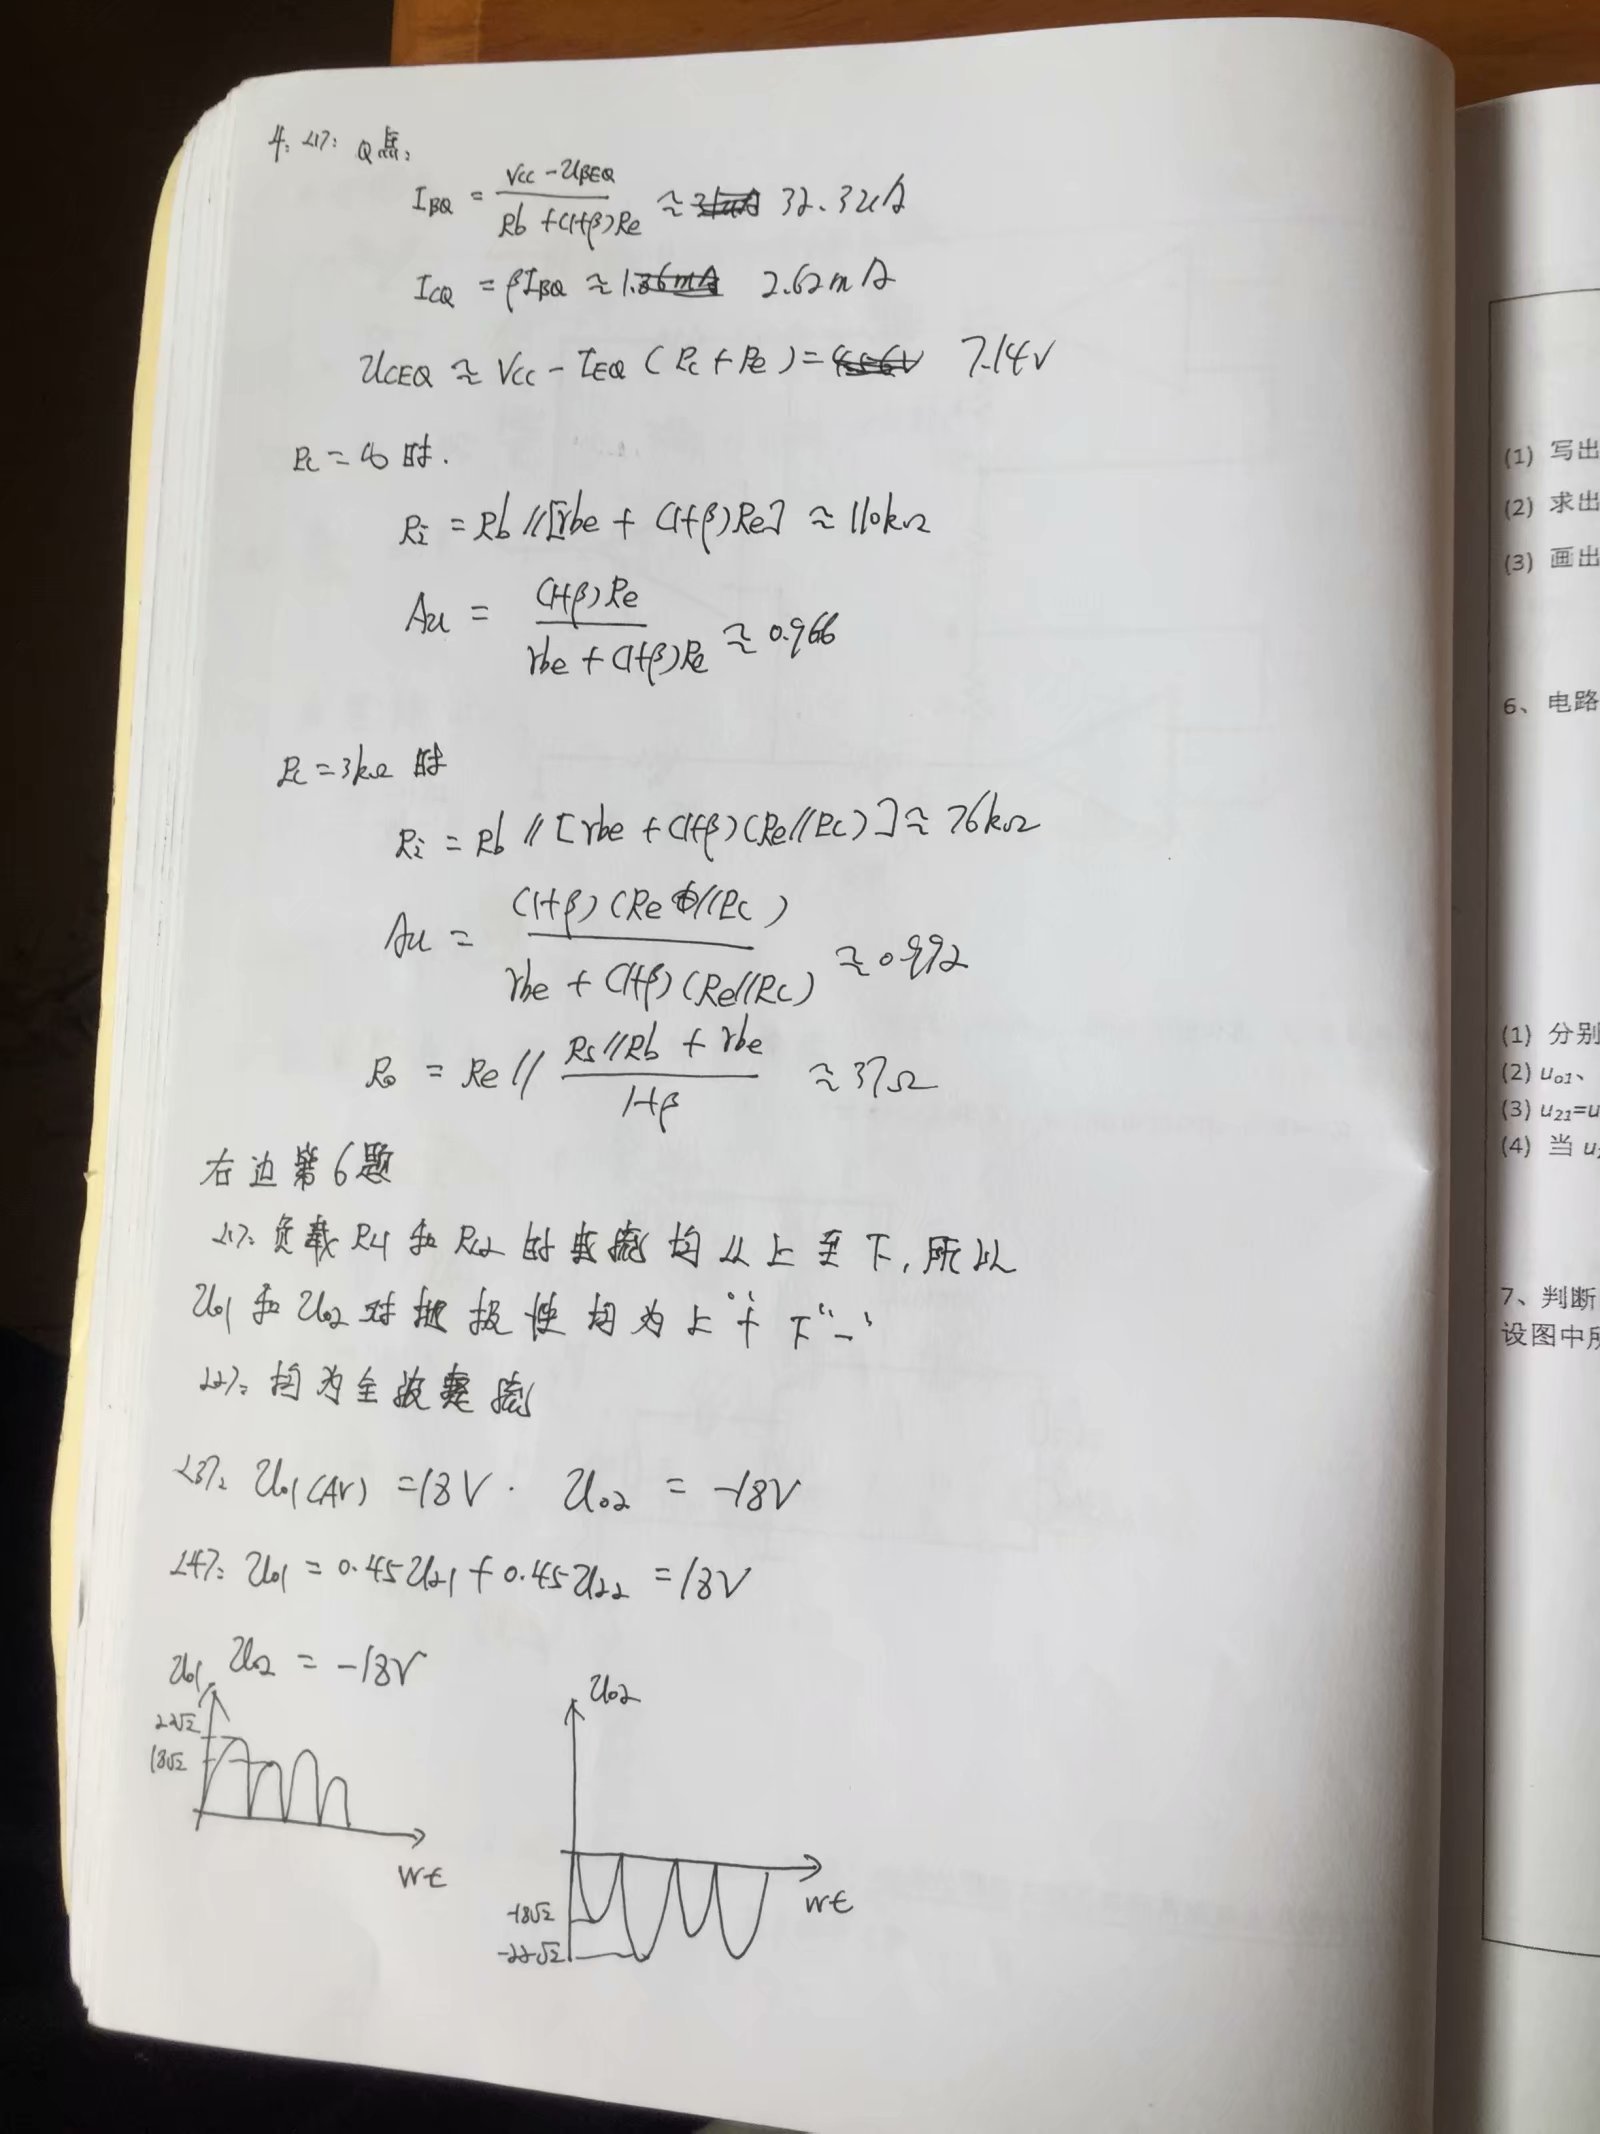 4. <1>: Q点:
IBQ = (Vcc - UBEQ) / (Rb + (1+β)Re) ≈ 32.3uA
ICQ = βIBQ ≈ 2.62mA
UCEQ ≈ Vcc - IEQ (Rc + Re) = 7.14V
RL = ∞ 时.
Ri = Rb // [rbe + (1+β)Re] ≈ 110kΩ
Au = (1+β)Re / (rbe + (1+β)Re) ≈ 0.966
RL = 3kΩ 时
Ri = Rb // [rbe + (1+β)(Re//RL)] ≈ 76kΩ
Au = (1+β)(Re//RL) / (rbe + (1+β)(Re//RL)) ≈ 0.992
Ro = Re // (Rs//Rb + rbe) / (1+β) ≈ 37Ω
右边第6题
<1>: 负载RL1和RL2的电流均从上至下,所以
Uo1和Uo2对地极性均为上"+"下"-"
<2>: 均为全波整流
<3>: Uo1(AV) = 18V. Uo2 = -18V
<4>: Uo1 = 0.45U21 + 0.45U22 = 18V
Uo2 = -18V
Uo1
22√2
18√2
wt
Uo2
wt
-18√2
-22√2
(1) 写出
(2) 求出
(3) 画出
6、电路
(1) 分别
(2) uo1、
(3) u21=u
(4) 当 u
7、判断
设图中所